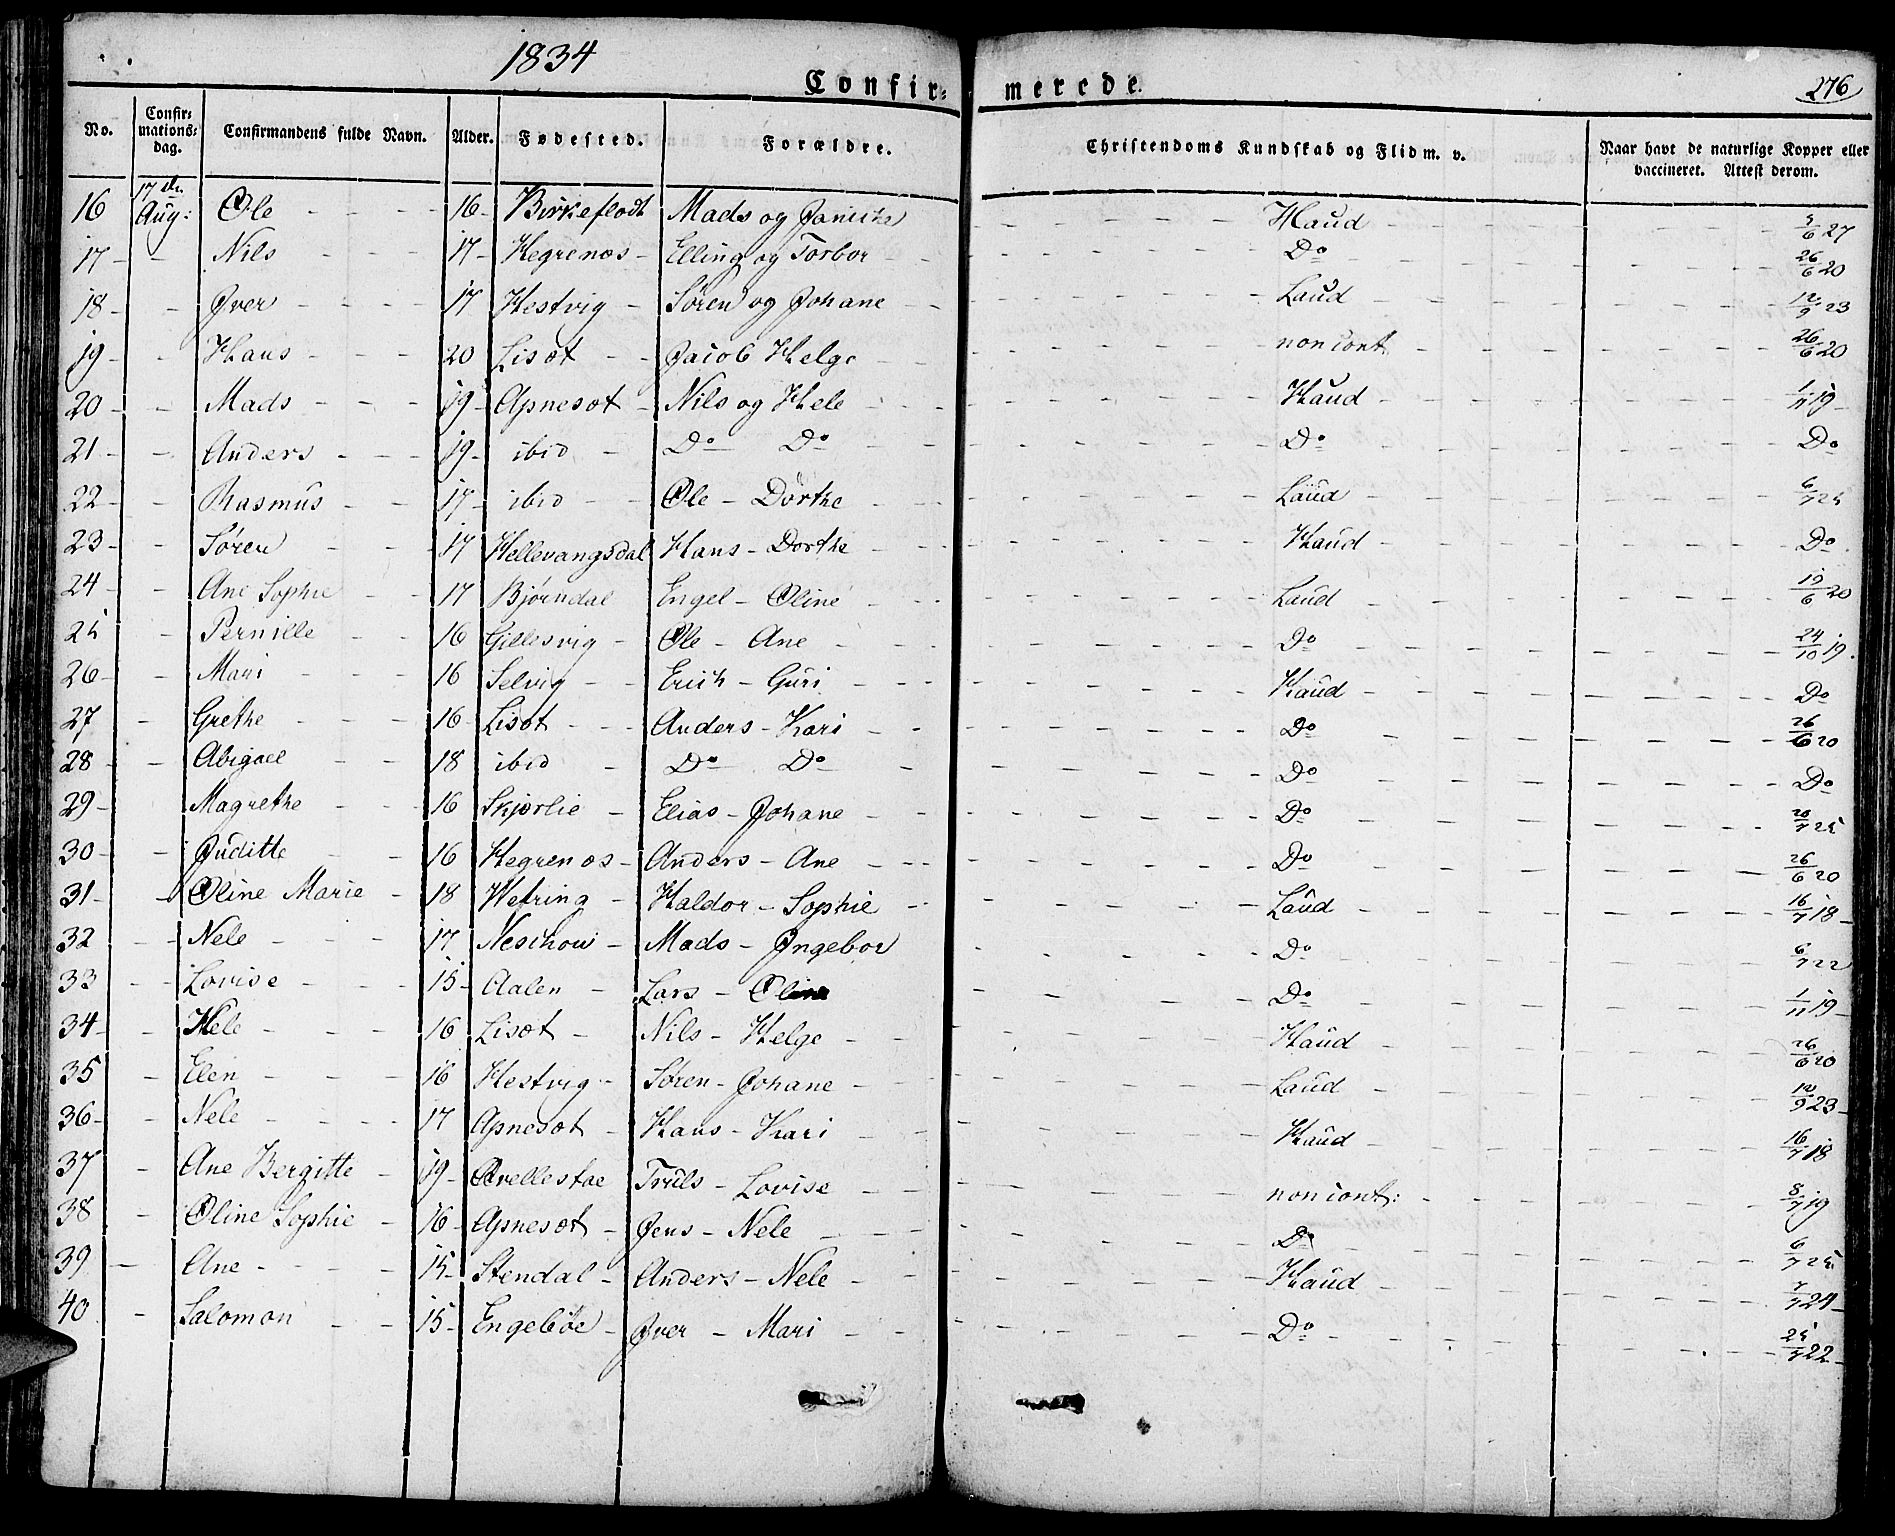 1834
Confir= merede. 276
No. Confir= mations= dag. Confirmandens fulde Navn. Alder. Fødested. Forældre. Christendoms Kundskab og Flid m. v. Naar havt de naturlige Kopper eller vaccineret. Attest derom.
16 17de Aug: Ole 16 Birkeflodt Mads og Janiche Haud 5/6 27
17 Nils 17 Hegrenæs Elling og Torbor Do 26/6 20
18 Iver 17 Hestvig Søren og Johane Laud 12/9 23
19 Hans 20 Lisæt Jacob Helge non cont 26/6 20
20 Mads 19 Apnesæt Nils og Hele Haud 1/11 19
21 Anders 19 ibid Do Do Do Do
22 Rasmus 17 ibid Ole - Dorthe Laud 6/7 25
23 Søren 17 Hellevangsdal Hans - Dorthe Haud Do
24 Ane Sophie 17 Bjørndal Engel - Oline Laud 19/6 20
25 Pernille 16 Gillesvig Ole - Ane Do 24/10 19.
26 Mari 16 Selvig Erich - Guri Haud Do
27 Grethe 16 Lisæt Anders - Kari Do 26/6 20
28 Abigael 18 ibid Do Do Do Do
29 Magrethe 16 Skjørlie Elias - Johane Do 20/7 25
30 Juditte 16 Hegrenæs Anders - Ane Do 26/6 20
31 Oline Marie 18 Hetring Haldor - Sophie Laud 16/7 18
32 Nele 17 Neschow Mads - Ingebor Do 6/7 22
33 Lovise 15 Aalen Lars - Oline Do 1/11 19
34 Hele 16 Lisæt Nils - Helge Haud 26/6 20
35 Elen 16 Hestvig Søren - Johane Laud 12/9 23
36 Nele 17 Apnesæt Hans - Kari Haud 16/7 18
37 Ane Bergitte 19 Qvellestae Truls - Lovise non cont: 8/7 19
38 Oline Sophie 16 Apnesæt Jens - Nele Do 6/7 25
39 Ane 15 Stendal Anders - Nele Haud 7/7 24
40 Salomon 15 Engebøe Iver - Mari Do 25/7 22